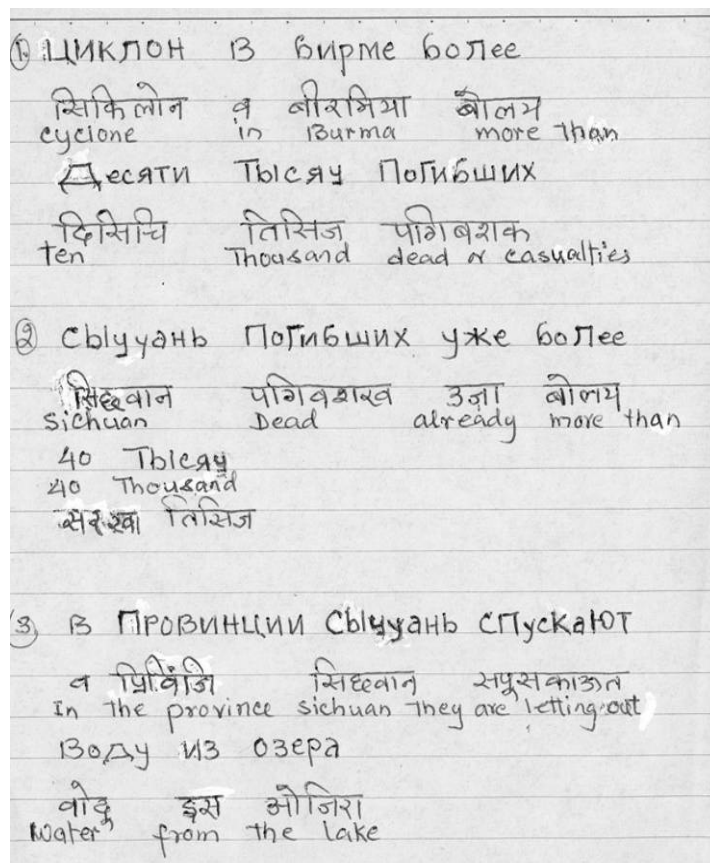 ① ЦИКЛОН В Бирме более
सिकिलोन व बीरमिया बोलय
cyclone in Burma more than
Десяти Тысяч Погибших
दिसिचि तिसिज पगिबशक
Ten Thousand dead or casualties
② Сычуань Погибших уже более
सिछवान पगिबशख उज़ा बोलय
sichuan Dead already more than
40 Тысяч
40 Thousand
तिसिज
③ В ПРОВИНЦИИ Сычуань спускают
व सिछवान सपूसकाऊत
In The province sichuan They are letting out
Воду из озера
वोदू इस ओजिरा
Water from The Lake